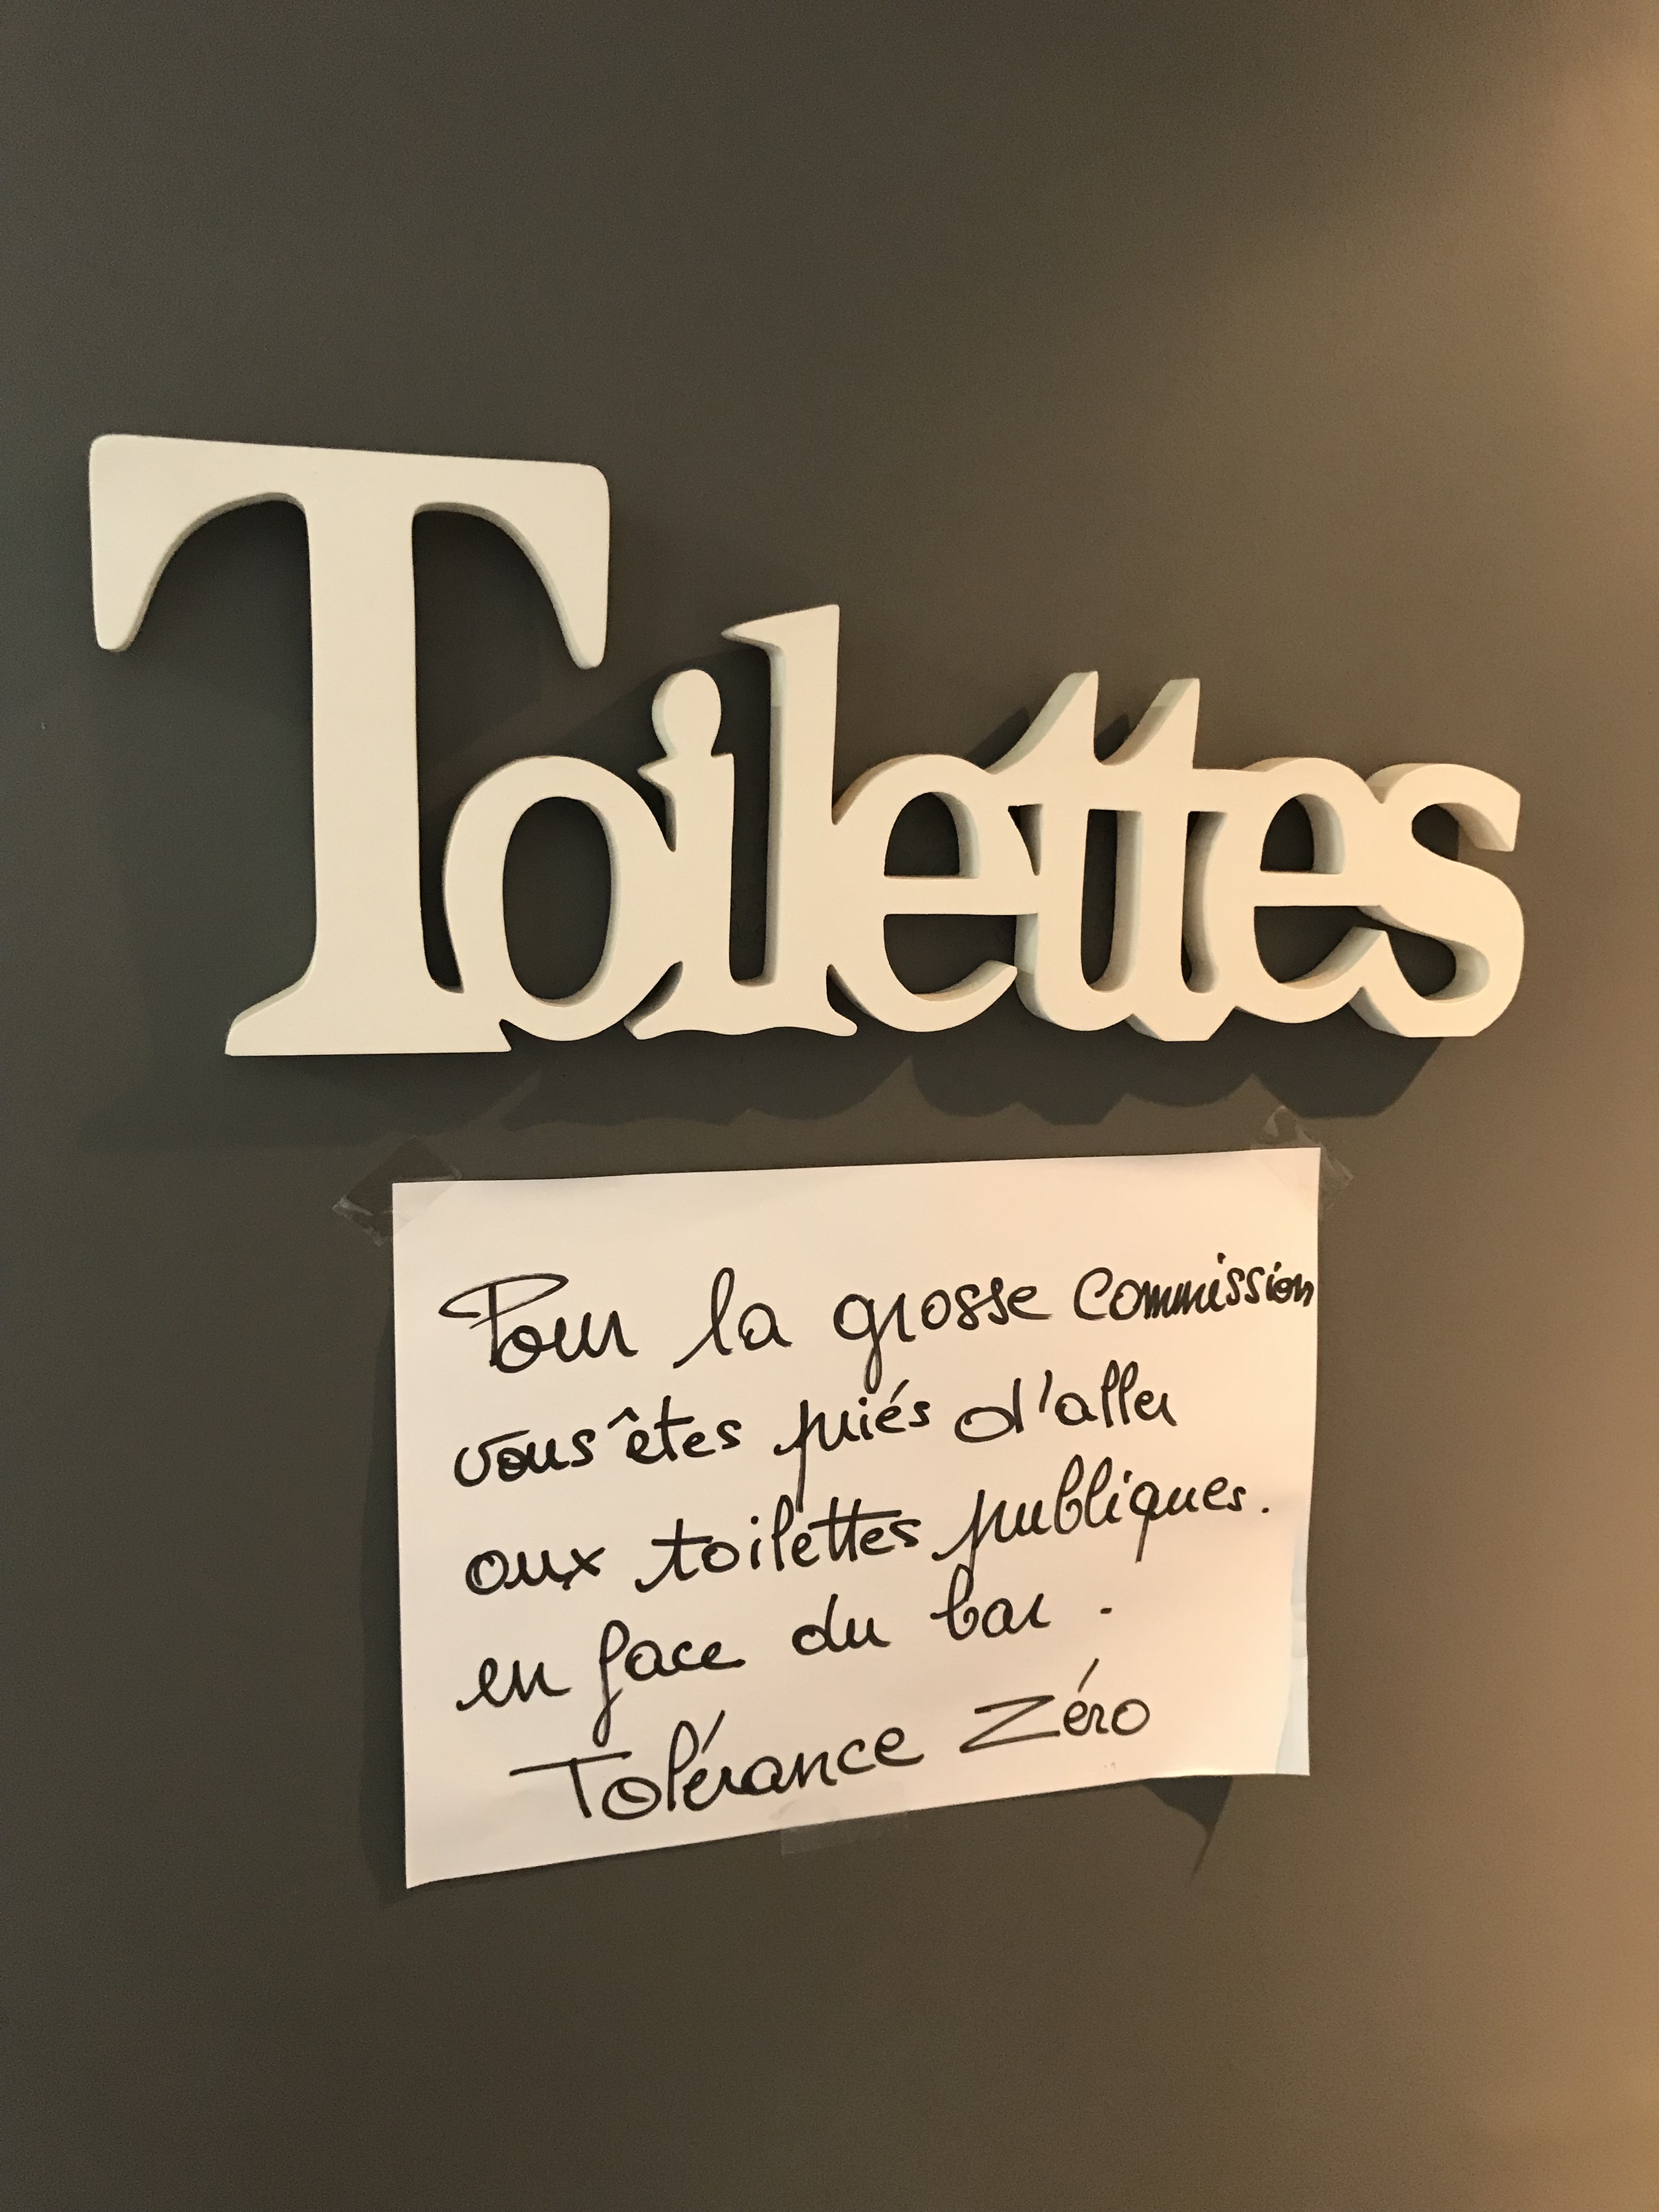 Toilettes
Pour la grosse commission
vous êtes priés d'aller
aux toilettes publiques.
en face du bar.
Tolérance Zéro